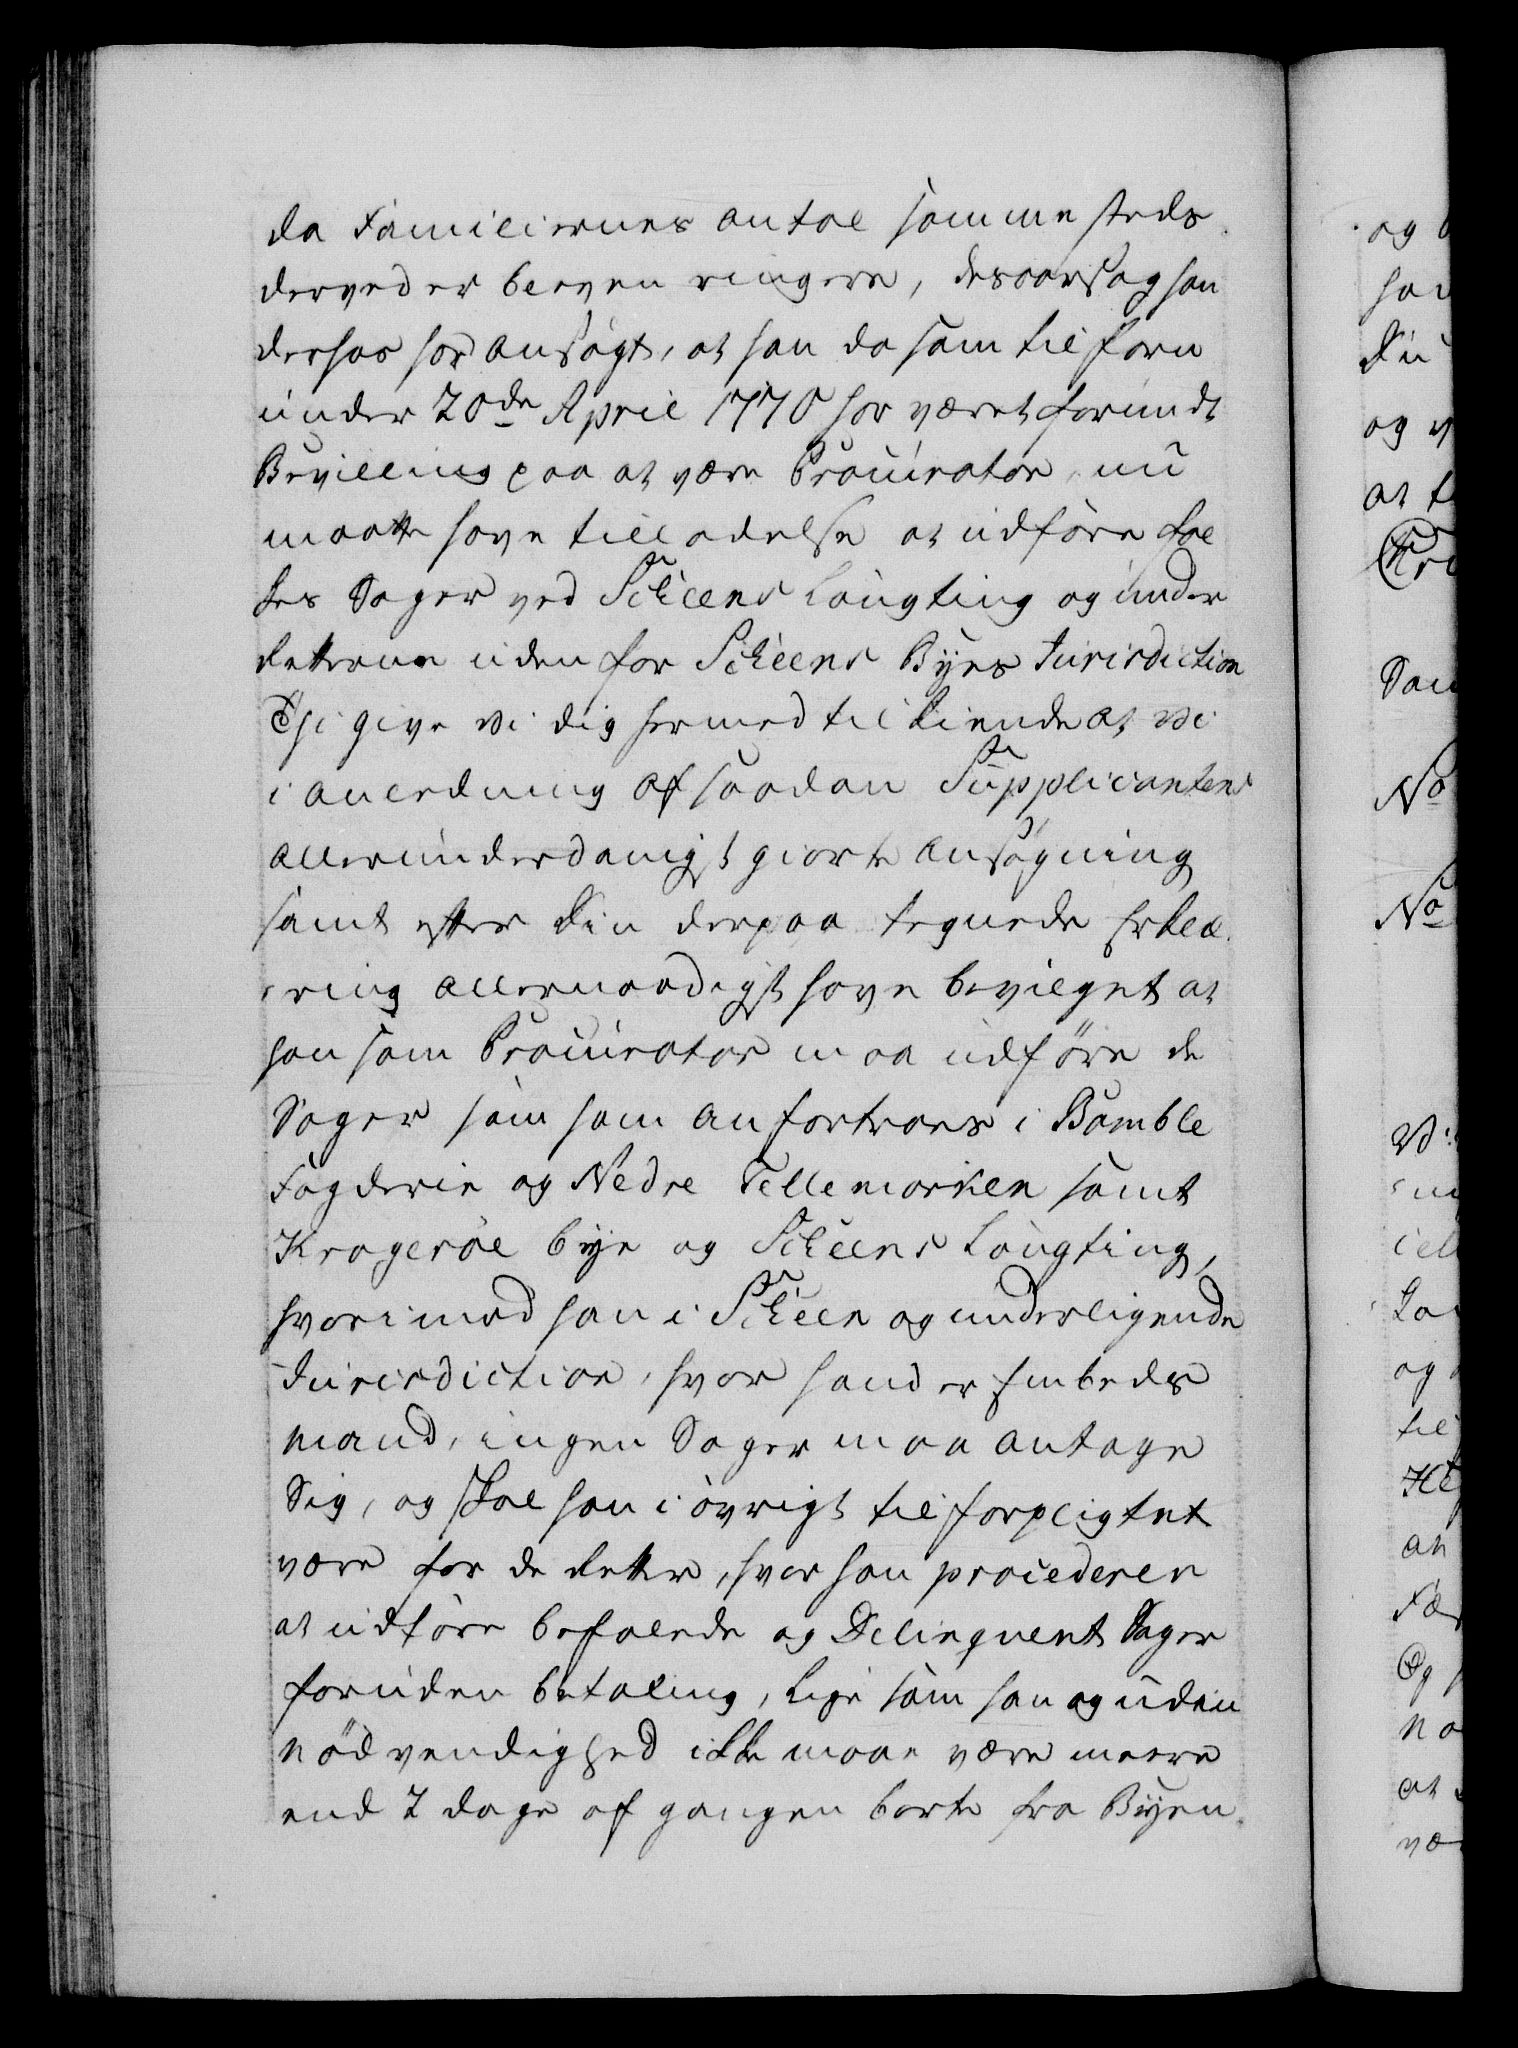 da Familiernes antal sammesteds
derved er bleven ringere, desaarsag han
derhos har ansøgt, at han da som tilforn
under 20de April 1770 har været forundt
Bevilling paa at være Procurator, nu
maatte have tilladelse at udføre fol
kes Sager ved Scheens Laugting og under
Retterne uden for Scheens Byes Jurisdiction
Thi give Vi dig hermed tilkiende at Vi
i anledning af saadan Supplicantens
allerunderdanigst giorte ansøgning
samt efter Din derpaa tegnede Erklæ
ring allernaadigst have bevilget at
han som Procurator maa udføre de
Sager som ham anfortroes i Bamble
Fogderie og Nedre Tellemarken samt
Krageröe bye og Scheens Laugting,
hvorimod han i Scheen og underligende
Jurisdiction, hvor hand er Embeds
mand, ingen Sager maa antage
Sig, og skal han i øvrigt tilforpligtet
være for de Retter, hvor han procederer
at udføre befalede og Delinqvent Sager
foruden betaling, lige som han og uden
nødvendighed ikke maae være meere
end 2 dage af gangen borte fra Byen.
og
Du
og
at
Sam
No
No
Vi
og
til
an
Og
at